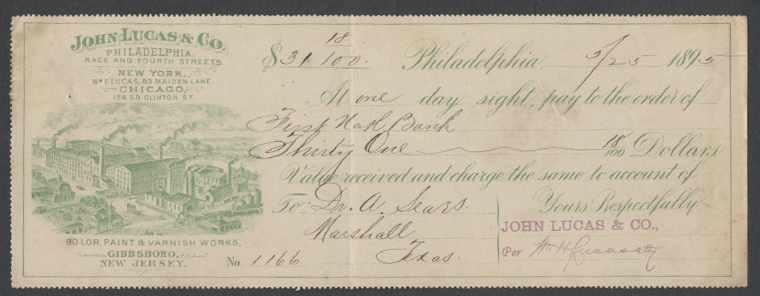 JOHN LUCAS & CO.
PHILADELPHIA.
RACE AND FOURTH STREETS
NEW YORK,
WM E. LUCAS, 89 MAIDEN LANE.
CHICAGO,
194 SO. CLINTON ST.
COLOR, PAINT & VARNISH WORKS,
GIBBSBORO,
NEW JERSEY.
No. 1166
$31 18/100. Philadelphia, 3/25 1895
At one day sight, pay to the order of
First Natl Bank
Thirty One 18/100 Dollars
Value received and charge the same to account of
To Dr. A. Sears Yours Respectfully
Marshall JOHN LUCAS & CO.,
Texas. Per Wm H Lucas atty